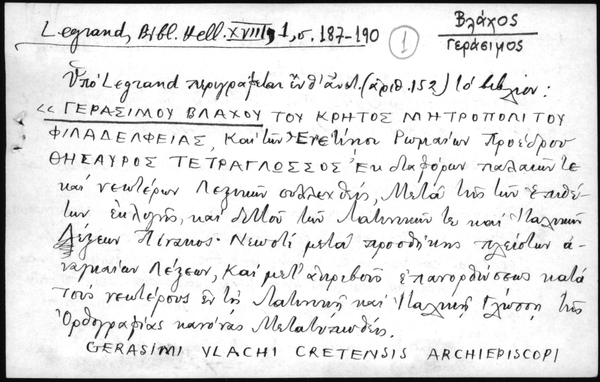 Legrand, Bibl. Hell. XVIII, 1, σ. 187-190
1
Βλάχος
Γεράσιμος
Ὑπό Legrand περιγράφεται ἐνθ' ἀνωτ. (ἀριθ. 152) τό βιβλίον:
«ΓΕΡΑΣΙΜΟΥ ΒΛΑΧΟΥ ΤΟΥ ΚΡΗΤΟΣ ΜΗΤΡΟΠΟΛΙΤΟΥ
ΦΙΛΑΔΕΛΦΕΙΑΣ, Καί τῶν Ἐνετίησι Ρωμαίων Προέδρου
ΘΗΣΑΥΡΟΣ ΤΕΤΡΑΓΛΩΣΣΟΣ Ἐκ διαφόρων παλαιῶν τε
καί νεωτέρων Λεξικῶν συλλεχθείς, Μετά τῆς τῶν Ἐπιθέ-
των ἐκλογῆς, καί διττοῦ τῶν Λατινικῶν τε καί Ἰταλικῶν
Λέξεων Πίνακος. Νεωστί μετά προσθήκης πλείστων ἀ-
ναγκαίων Λέξεων, Καί μετ' ἀκριβοῦς ἐπανορθώσεως κατά
τούς νεωτέρους ἐν τῇ Λατινικῇ καί Ἰταλικῇ Γλώσσῃ τῆς
Ὀρθογραφίας κανόνας Μετατυπωθείς.
GERASIMI VLACHI CRETENSIS ARCHIEPISCOPI